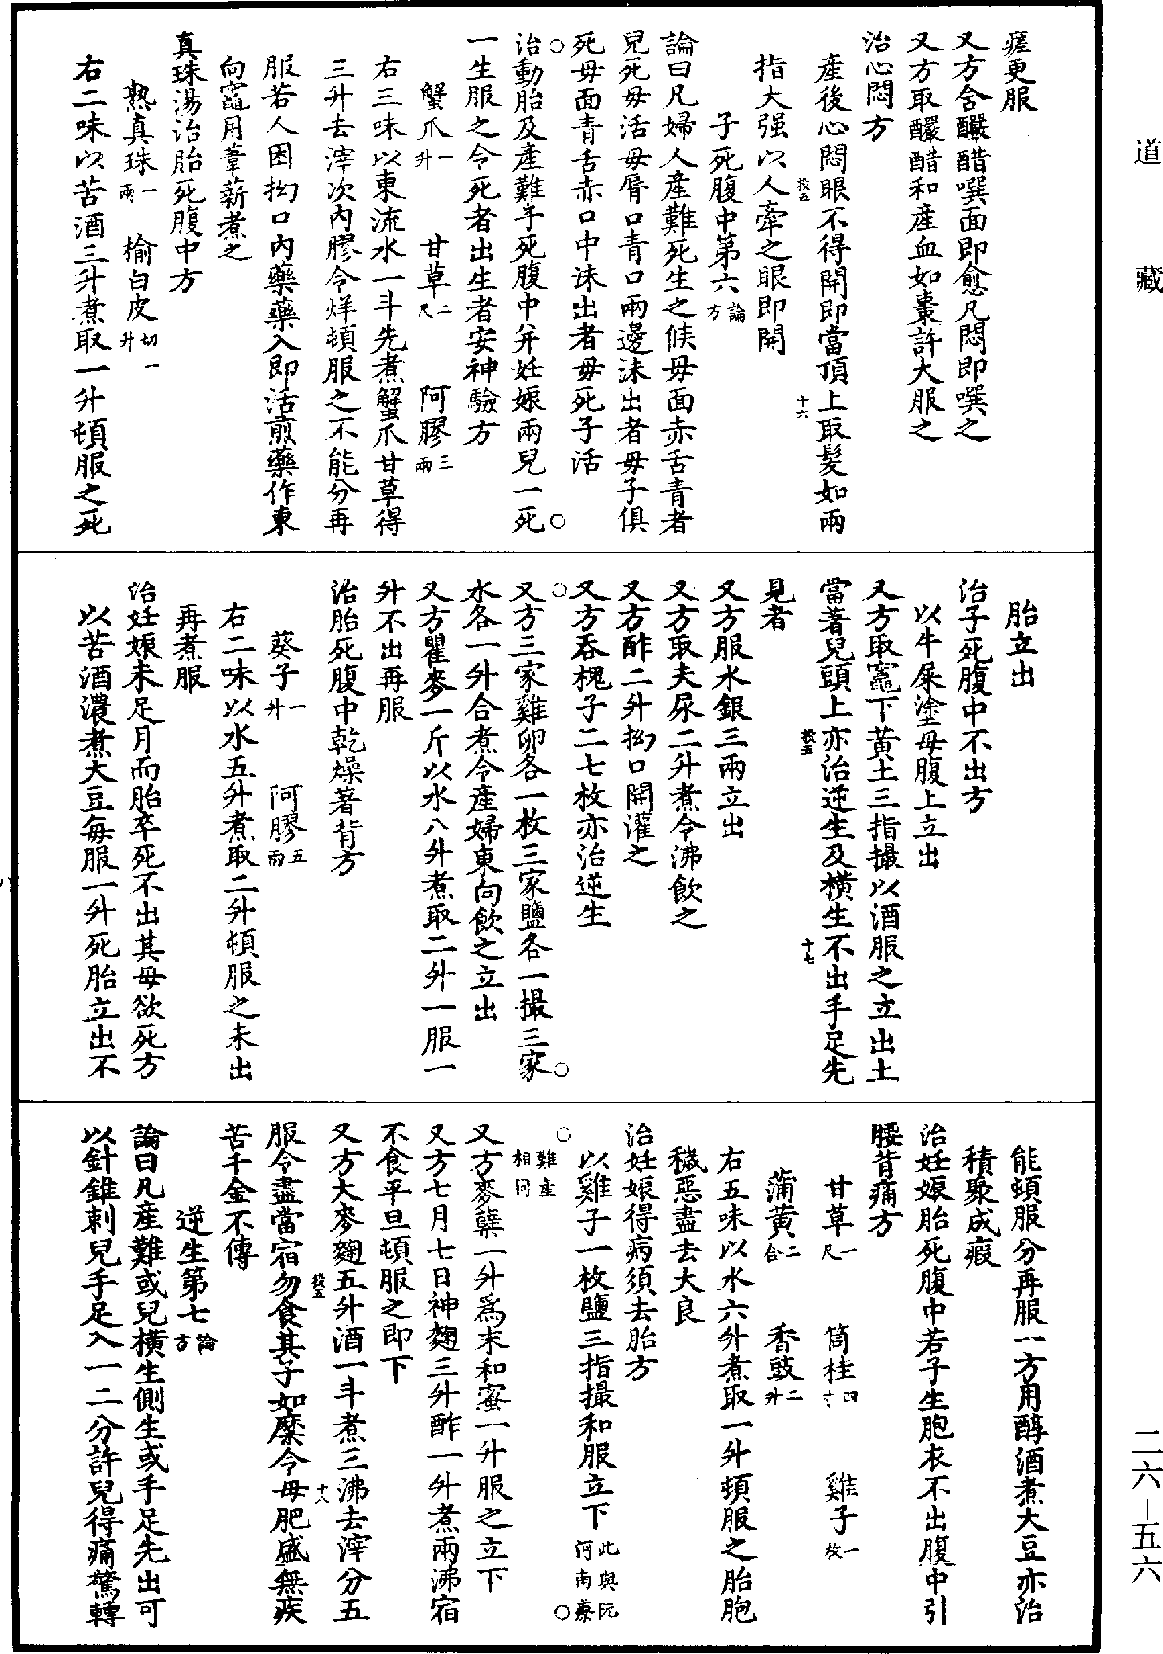 道藏
瘥更服
又方含釅醋噀面即愈凡悶即噀之
又方取釅醋和產血如棗許大服之
治心悶方
產後心悶眼不得開即當頂上取髮如兩
技五
十六
指大强以人牽之眼即開
子死腹中第六論方
論曰凡婦人產難死生之候母面赤舌青者
兒死母活母脣口青口兩邊沫出者母子俱
死母面青舌赤口中沫出者母死子活
治動胎及產難子死腹中并妊娠兩兒一死
一生服之令死者出生者安神驗方
蟹爪一升 甘草二尺 阿膠三兩
右三味以東流水一斗先煮蟹爪甘草得
三升去滓次內膠令烊頓服之不能分再
服若人困拗口內藥藥入即活煎藥作東
向竈用葦薪煮之
真珠湯治胎死腹中方
熟真珠一兩 榆白皮切一升
右二味以苦酒三升煮取一升頓服之死
胎立出
治子死腹中不出方
以牛屎塗母腹上立出
又方取竈下黄土三指撮以酒服之立出土
當著兒頭上亦治逆生及橫生不出手足先
技五
十七
見者
又方服水銀三兩立出
又方取夫尿二升煮令沸飲之
又方酢二升拗口開灌之
又方吞槐子二七枚亦治逆生
又方三家雞卵各一枚三家鹽各一撮三家
水各一升合煮令產婦東向飲之立出
又方瞿麥一斤以水八升煮取二升一服一
升不出再服
治胎死腹中乾燥著背方
葵子一升 阿膠五兩
右二味以水五升煮取二升頓服之未出
再煮服
治妊娠未足月而胎卒死不出其母欲死方
以苦酒濃煮大豆每服一升死胎立出不
能頓服分再服一方用醇酒煮大豆亦治
積聚成瘕
治妊娠胎死腹中若子生胞衣不出腹中引
腰背痛方
甘草一尺 筒桂四寸 雞子一枚
蒲黄二合 香豉二升
右五味以水六升煮取一升頓服之胎胞
穢惡盡去大良
治妊娠得病須去胎方
以雞子一枚鹽三指撮和服立下此與阮河南療
難產相同
又方麥糵一升為末和蜜一升服之立下
又方七月七日神麴三升酢一升煮兩沸宿
不食平旦頓服之即下
又方大麥麴五升酒一斗煮三沸去滓分五
技五
十八
服令盡當宿勿食其子如糜令母肥盛無疾
苦千金不傳
逆生第七論方
論曰凡產難或兒橫生側生或手足先出可
以針錐刺兒手足入一二分許兒得痛驚轉
二六—五六